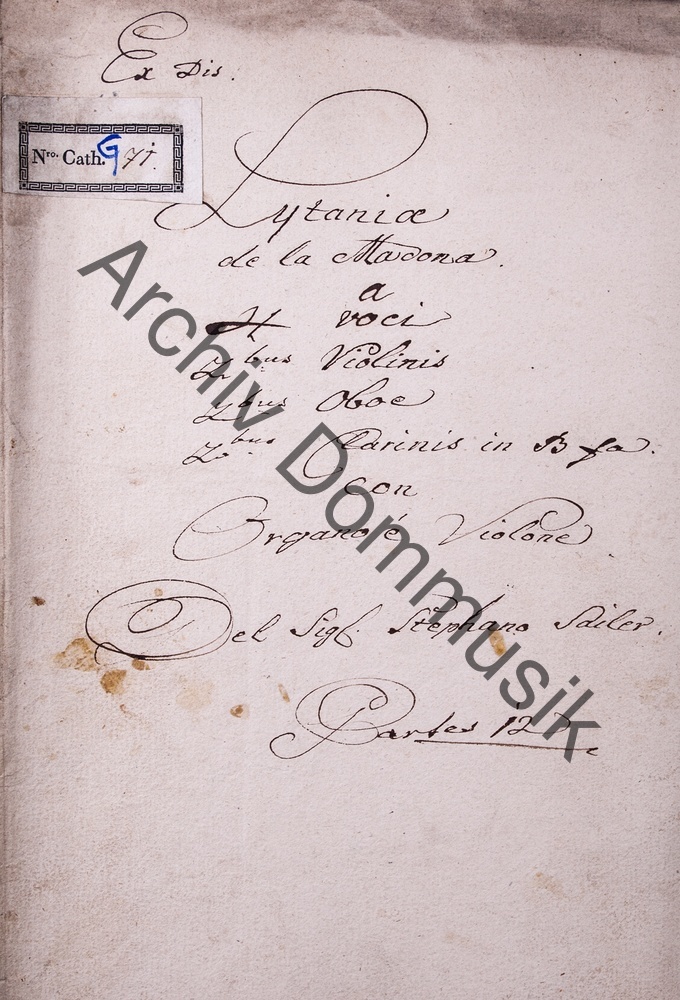 Ex Dis.
Nro. Cath. G 71.
Lytaniæ
de la Madona.
a
4 voci
2bus Violinis
2bus Oboe
2bus Clarinis in B fa.
con
Organo é Violone
Del Sigl. Stephano Sailer.
Partes 12
Archiv Dommusik